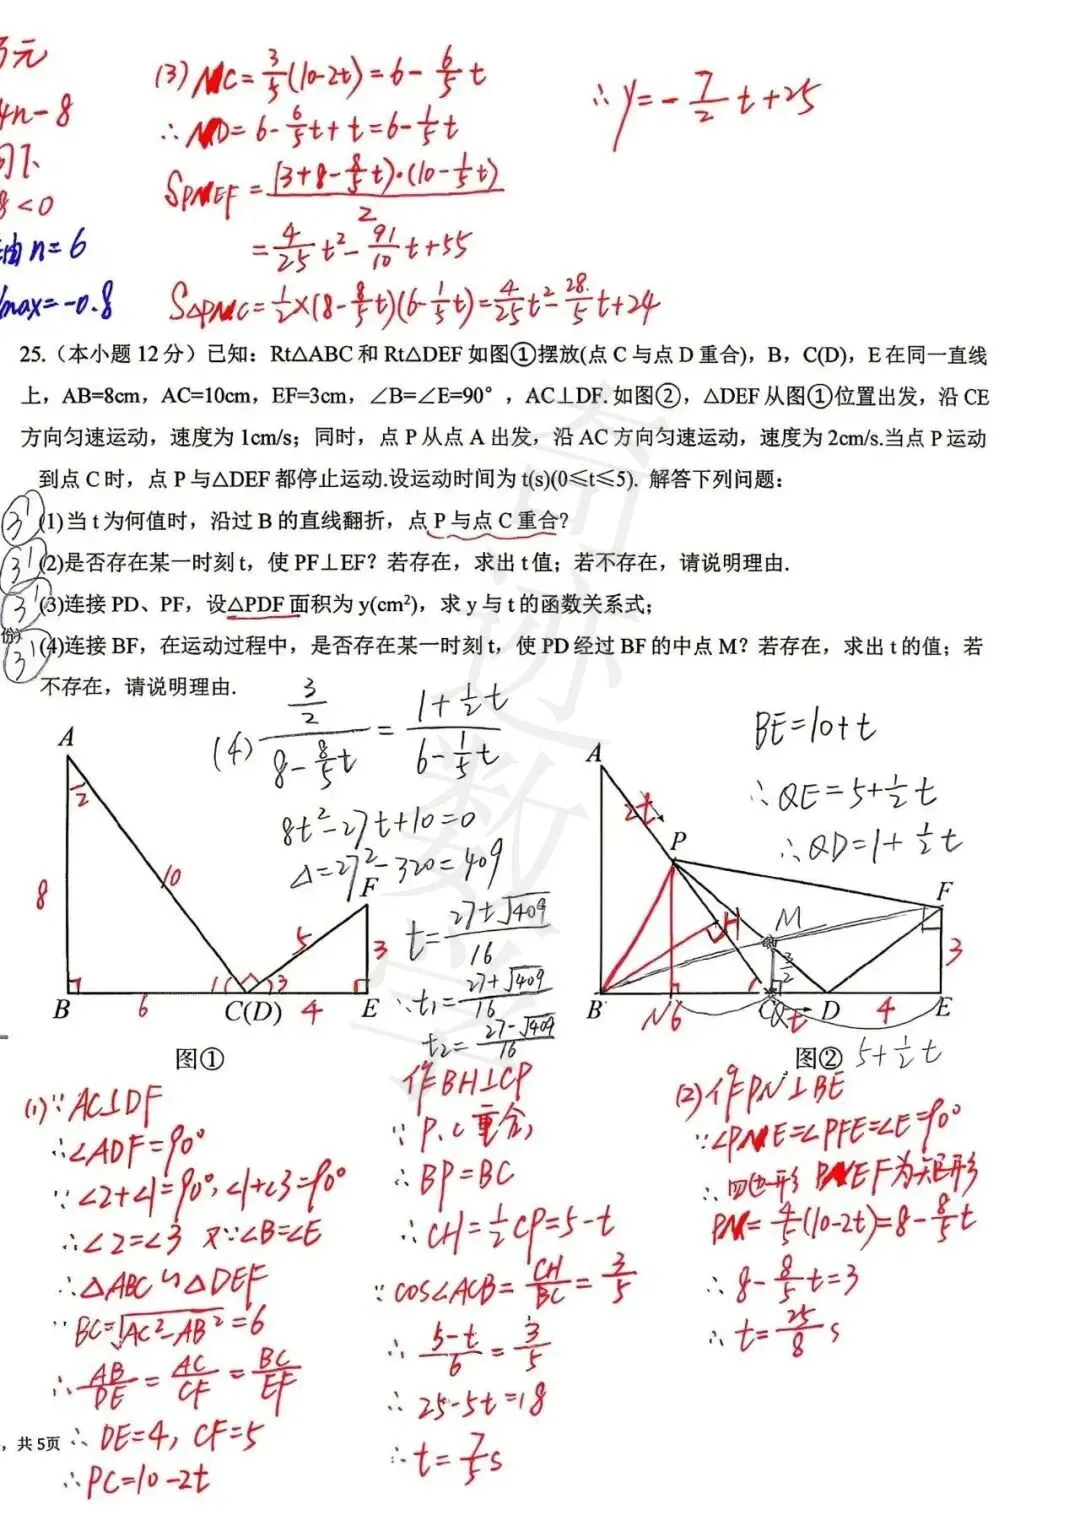 万元
4n-8
8<0
n=6
max=-0.8
(3) NC=3/5(10-2t)=6-6/5t
∴ND=6-6/5t+t=6-1/5t
S_PNEF=(3+8-8/5t)·(10-1/5t)/2
=4/25t²-91/10t+55
S△PNC=1/2×(8-8/5t)(6-1/5t)=4/25t²-28/5t+24
∴y=-7/2t+25
25.（本小题12分）已知：Rt△ABC和Rt△DEF如图①摆放(点C与点D重合)，B，C(D)，E在同一直线
上，AB=8cm，AC=10cm，EF=3cm，∠B=∠E=90°，AC⊥DF.如图②，△DEF从图①位置出发，沿CE
方向匀速运动，速度为1cm/s；同时，点P从点A出发，沿AC方向匀速运动，速度为2cm/s.当点P运动
到点C时，点P与△DEF都停止运动.设运动时间为t(s)(0≤t≤5). 解答下列问题：
3' (1)当t为何值时，沿过B的直线翻折，点P与点C重合?
3' (2)是否存在某一时刻t，使PF⊥EF？若存在，求出t值；若不存在，请说明理由.
3' (3)连接PD、PF，设△PDF面积为y(cm²)，求y与t的函数关系式；
份)
3' (4)连接BF，在运动过程中，是否存在某一时刻t，使PD经过BF的中点M？若存在，求出t的值；若
不存在，请说明理由.
(4) (3/2)/(8-8/5t)=(1+1/2t)/(6-1/5t)
8t²-27t+10=0
△=27²-320=409
t=(27±√409)/16
∴t₁=(27+√409)/16
t₂=(27-√409)/16
BE=10+t
∴QE=5+1/2t
∴QD=1+1/2t
A
2
8
10
F
5
3
B
6
1
C(D)
3
4
E
图①
A
2t
P
H
M
F
3/2
3
B
N
6
C
Q
t
D
4
E
图②
5+1/2t
(1)∵AC⊥DF
∴∠ADF=90°
∵∠2+∠1=90°,∠1+∠3=90°
∴∠2=∠3 又∵∠B=∠E
∴△ABC∽△DEF
∵BC=√AC²-AB²=6
∴AB/DE=AC/CF=BC/EF
∴DE=4, CF=5
，共5页
∴PC=10-2t
作BH⊥CP
∵P、C重合,
∴BP=BC
∴CH=1/2CP=5-t
∵cos∠ACB=CH/BC=3/5
∴(5-t)/6=3/5
∴25-5t=18
∴t=7/5s
(2)作PN⊥BE
∵∠PNE=∠PFE=∠E=90°
∴四边形PNEF为矩形
PN=4/5(10-2t)=8-8/5t
∴8-8/5t=3
∴t=25/8s